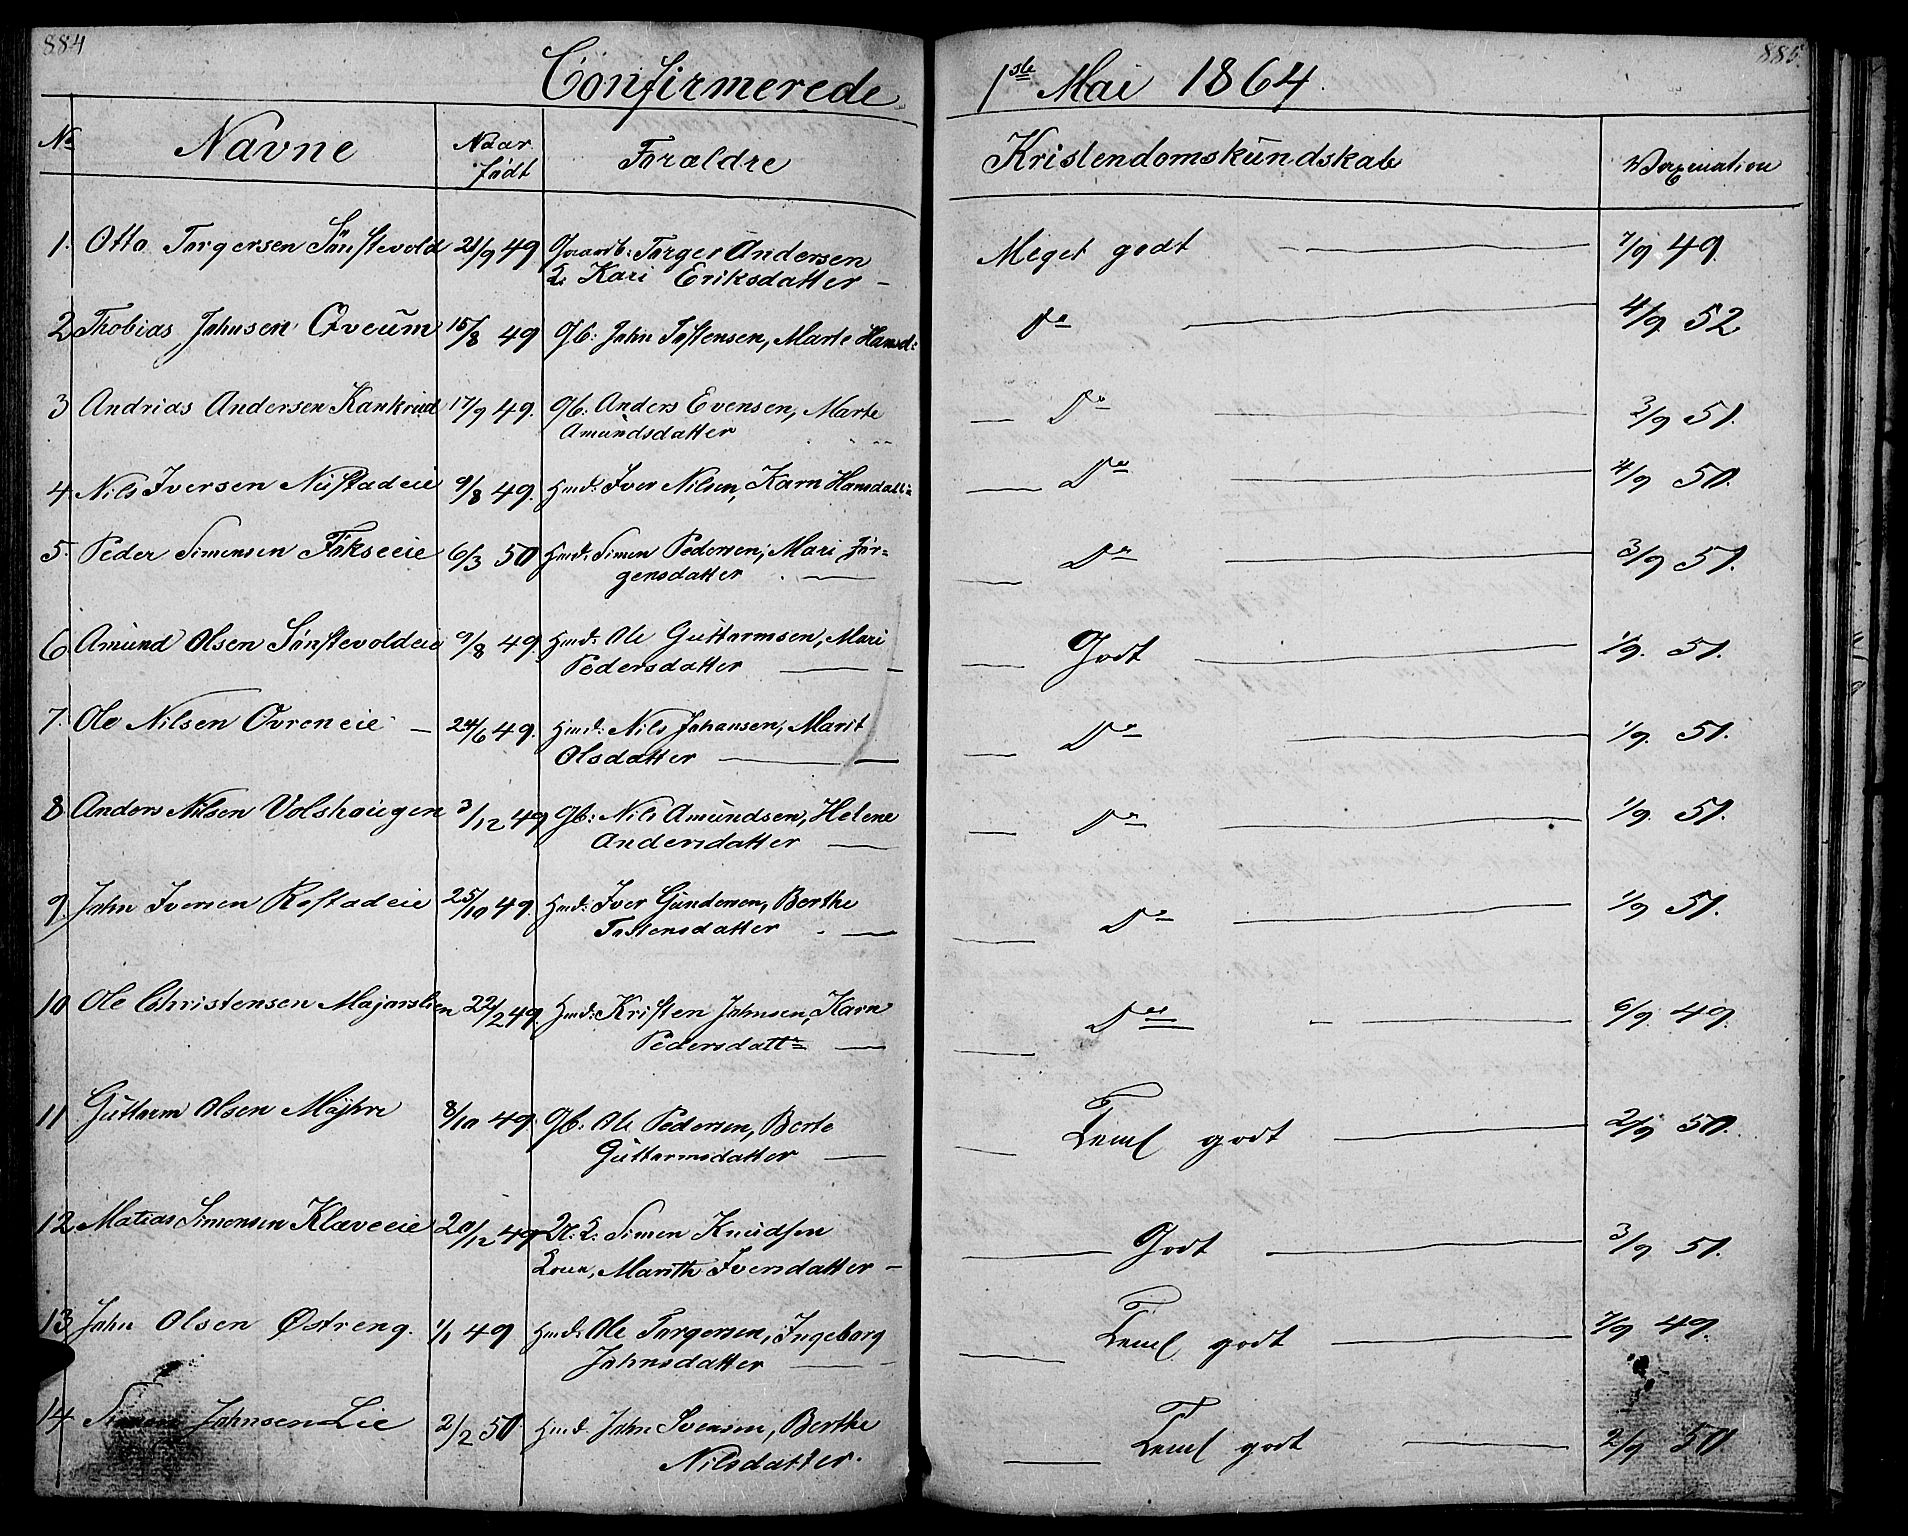 884
885.
Confirmerede 1ste Mai 1864.
No Navne Naar Födt Foraldre Kristendomskundskab Vaxination
1. Otto Torgersen Sönstevold 21/9 49 Gaardb: Torger Andersen Meget godt 7/9 49.
& Kari Eriksdatter
2 Thobias Johnsen Qveum 15/8 49 Gb: John Tostensen, Marte Hansd: Do 4/9 52
3 Andrias Andersen Kankrud 17/9 49. Gb: Anders Evensen, Marte Do 3/9 51.
Amundsdatter
4 Nils Iversen Nustadeie 9/8 49. Hmd: Iver Nilsen, Karn Hansdatt: Do 4/9 50.
5. Peder Simensen Fökseeie 6/3 50 Hmd: Simen Pedersen, Mari Jör-
gensdatter Do 3/9 51.
6 Amund Olsen Sönstevoldeie 9/8 49. Hmd: Ole Guttormsen, Mari Godt 1/9. 51.
Pedersdatter
7. Ole Nilsen Ovreneie 24/6 49. Hmd: Nils Johansen, Marit Do 1/9. 51.
Olsdatter
8 Anders Nilsen Volshaugen 3/12 49 Gb: Nils Amundsen, Helene Do 1/9. 51.
Andersdatter
9. John Iversen Rostadeie 25/10 49. Hmd: Iver Gundersen, Berthe Do 1/9 51.
Tostensdatter
10 Ole Christensen Majorslien 22/2 49. Hmd: Kristen Johnsen, Karn Do 6/9. 49.
Pedersdattr
11 Guttorm Olsen Möjhre 8/10 49. Gb. Ole Pedersen, Berte Teml godt 2/9 50.
Guttormsdatter
12 Matias Simensen Klæveeie 20/12 49 Simen Knudsen Godt 3/9 51.
Marith Iversdatter
13 John Olsen Østreng. 1/1 49 Hmd: Ole Torgersen, Ingeborg Teml godt 7/9 49.
Johnsdatter
14 Simen Johnsen Lie 2/2 50. Hmd: John Svensen, Berthe Teml godt 2/9 50
Nilsdatter.